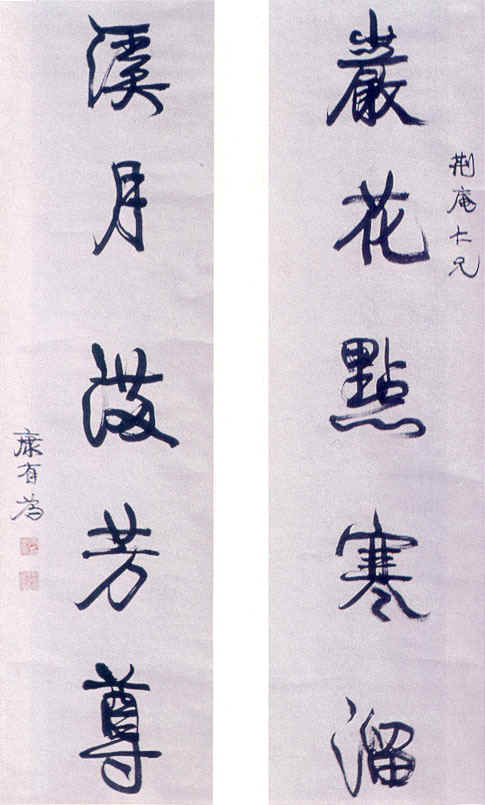 荆庵仁兄
巖花點寒溜
溪月芳尊
康有為